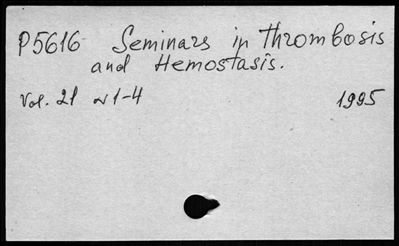 P5616 Seminars in Thrombosis
and Hemostasis.
Vol. 21 N 1-4 1995